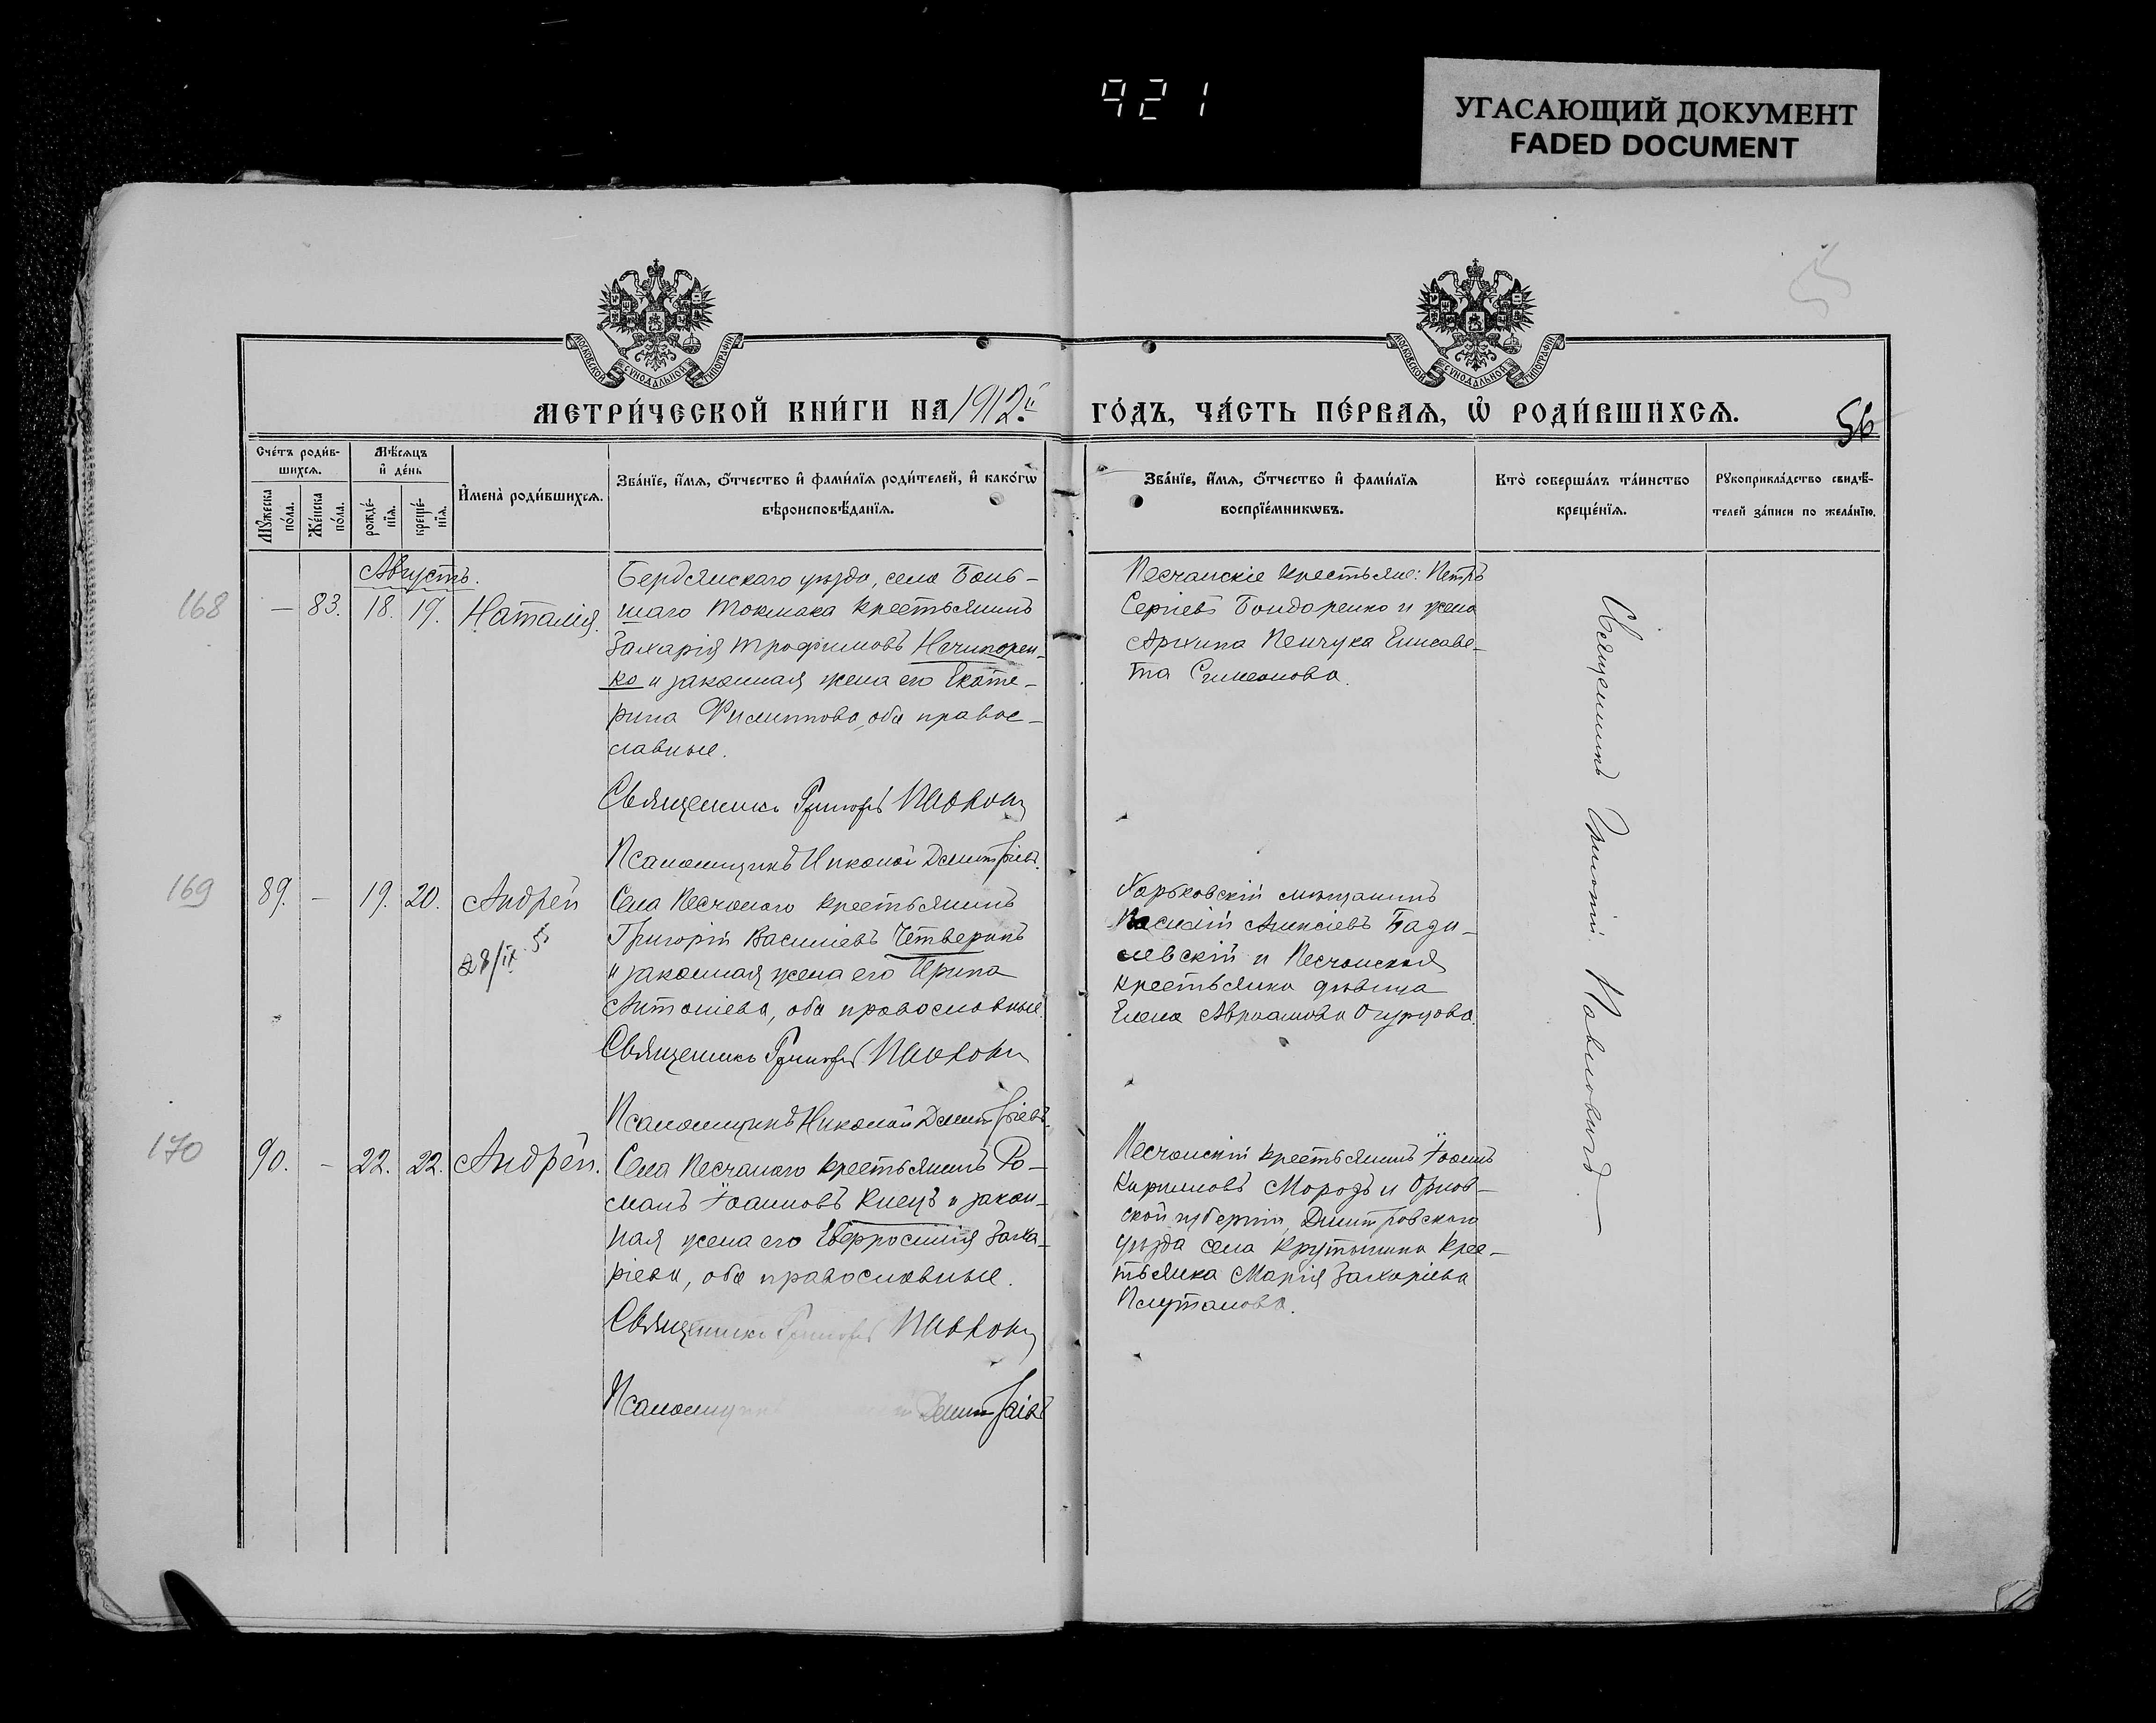 921
УГАСАЮЩИЙ ДОКУМЕНТ
FADED DOCUMENT
55
МОСКОВСКОЙ СУНОДАЛЬНОЙ ТИПОГРАФІИ
МОСКОВСКОЙ СУНОДАЛЬНОЙ ТИПОГРАФІИ
МЕТРИ́ЧЕСКОЙ КНИ́ГИ НА 1912й
ГО́ДЪ, ЧА́СТЬ ПЕ́РВАѦ, Ѡ҆ РОДИ́ВШИХСѦ.
56
Сче́тъ роди́в-
шихсѧ.
Мѣ́сѧцъ
и҆ де́нь
Мꙋ́жеска
по́ла.
Же́нска
по́ла.
рожде́-
нїѧ.
креще́-
нїѧ.
И҆мена̀ роди́вшихсѧ.
Зва́нїе, и҆́мѧ, ѻ҆́тчество и҆ фами́лїѧ роди́телей, и҆ како́гѡ
вѣроисповѣ́данїѧ.
Зва́нїе, и҆́мѧ, ѻ҆́тчество и҆ фами́лїѧ
воспрїе́мникѡвъ.
Кто̀ соверша́лъ та́инство
креще́нїѧ.
Рꙋкоприкла́дство свидѣ́-
телей за́писи по жела́нїю.
Августъ.
168
— 83. 18. 19. Наталія.
Бердянскаго уѣзда, села Боль-
шаго Токмака крестьянинъ
Захарія Трофимовъ Нечипорен-
ко и законная жена его Екате-
рина Филиппова, оба правос-
лавные.
Священникъ Григорій Павлович
Псаломщикъ Николай Димитріевъ.
Песчанскіе крестьяне: Петръ
Сергіевъ Бондаренко и жена
Архипа Пенчука Елисаве-
та Симеонова.
Священникъ Григорій Павловичъ
169
89. — 19. 20. Андрей
28/IX 5
Села Песчанаго крестьянинъ
Григорій Василіевъ Четверикъ
и законная жена его Ирина
Антоніева, оба православные.
Священникъ Григорій Павлович
Псаломщикъ Николай Димитріевъ.
Харьковскій мѣщанинъ
Василій Алексіевъ
левскій и Песчанская
крестьянка дѣвица
Елена Авраамова Огурцова.
170
90. — 22. 22. Андрей.
Села Песчанаго крестьянинъ Ро-
манъ Іоанновъ Киецъ и закон-
ная жена его Евфросинія Заха-
ріева, оба православные.
Священникъ Григорій Павлович
Псаломщикъ Димитріевъ
Песчанскій крестьянинъ Іоаннъ
Кирилловъ Морозъ и Орлов-
ской губерніи, Дмитровскаго
уѣзда села Крупышина крес-
тьянка Марія Захаріева
Плутанова.